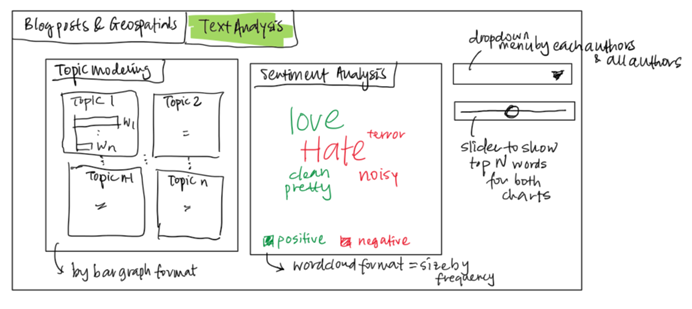 Blog posts & Geospatials
Text Analysis
Topic modeling
Topic 1
W1
Wn
Topic 2
Topic n-1
Topic n
by bar graph format
Sentiment Analysis
love
Hate
terror
clean
pretty
noisy
positive
negative
wordcloud format = size by
frequency
dropdown
menu by each authors
& all authors
slider to show
top N words
for both
charts